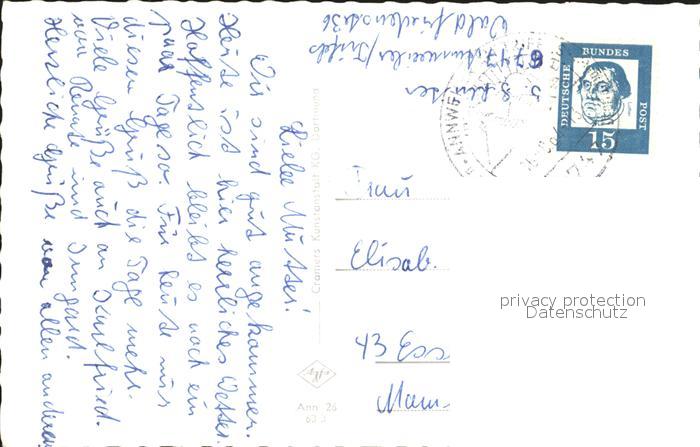 Liebe Mutter!
Wir sind gut angekommen.
Heute ist hier herrliches Wetter
Hoffentlich bleibt es noch ein
paar Tage so. Für heute nur
diesen Gruß die Tage mehr.
Viele Grüße auch an
von Renate und Irmgard.
Herzliche Grüße von allen anderen
Cramers Kunstanstalt KG. Dortmund
Ann 26
Frau
Elisab.
43 Ess
6747
DEUTSCHE BUNDES POST
15
privacy protection
Datenschutz